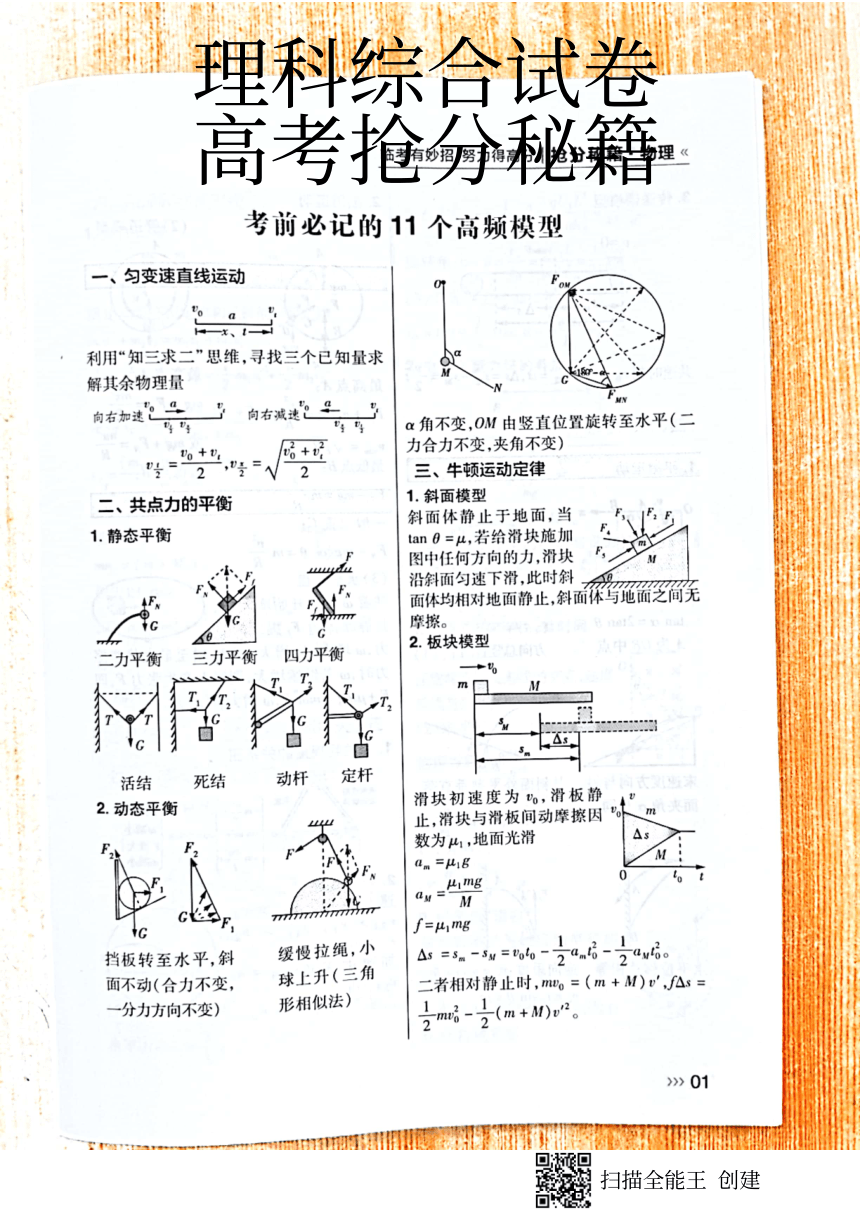 理科综合试卷
高考抢分秘籍
临考有妙招 努力得高分 抢分秘籍·物理 «
考前必记的 11 个高频模型
一、匀变速直线运动
v₀ a vₜ
x、t
利用“知三求二”思维,寻找三个已知量求
解其余物理量
向右加速 v₀ a vₜ 向右减速 v₀ a vₜ
v_{t/2} = (v₀ + vₜ)/2 , v_{x/2} = √((v₀² + vₜ²)/2)
二、共点力的平衡
1. 静态平衡
F_N G
F_N F G θ
F F_N F_f G
二力平衡 三力平衡 四力平衡
T T G
T₁ T₂ G
T₁ T₂ G
T₁ T₂ G
活结 死结 动杆 定杆
2. 动态平衡
F₂ F₁ G
F₂ G F₁
F F F_N G
挡板转至水平,斜
面不动(合力不变,
一分力方向不变)
缓慢拉绳,小
球上升(三角
形相似法)
O M α N
F_OM G F_MN
α 角不变,OM 由竖直位置旋转至水平(二
力合力不变,夹角不变)
三、牛顿运动定律
1. 斜面模型
斜面体静止于地面,当
tan θ =μ,若给滑块施加
图中任何方向的力,滑块
沿斜面匀速下滑,此时斜
面体均相对地面静止,斜面体与地面之间无
摩擦。
F₃ F₂ F₁ F₄ F₅ m M θ
2. 板块模型
v₀
m M
s_M
Δs
s_m
滑块初速度为 v₀,滑板静
止,滑块与滑板间动摩擦因
数为 μ₁,地面光滑
v v₀ m Δs M 0 t₀ t
a_m =μ₁g
a_M = μ₁mg/M
f=μ₁mg
Δs =s_m - s_M =v₀t₀ - 1/2 a_m t₀² - 1/2 a_M t₀²。
二者相对静止时,mv₀ = (m + M)v′,fΔs =
1/2 mv₀² - 1/2 (m + M)v′²。
››› 01
扫描全能王 创建